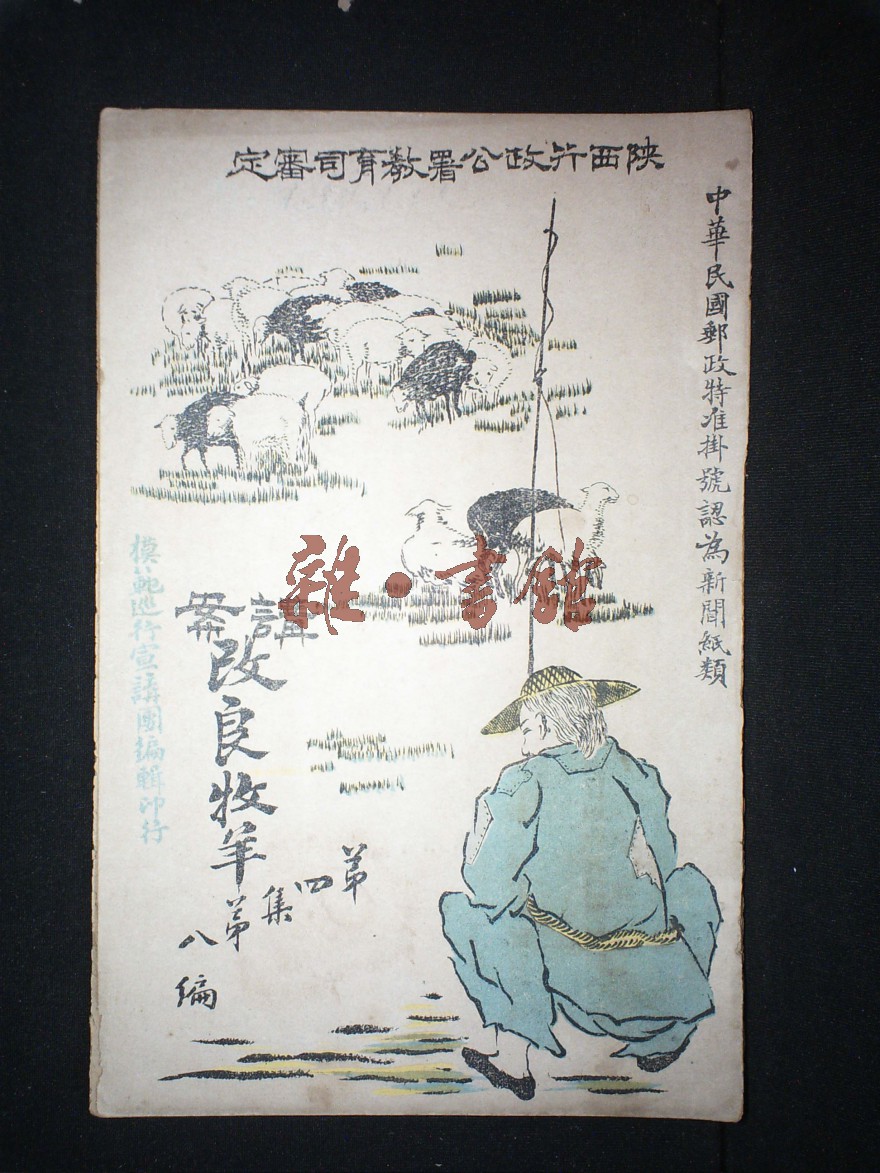 陝西行政公署教育司審定
中華民國郵政特准掛號認為新聞紙類
講案
改良牧羊
第四集第八編
模範巡行宣講團編輯印行
雜·書館